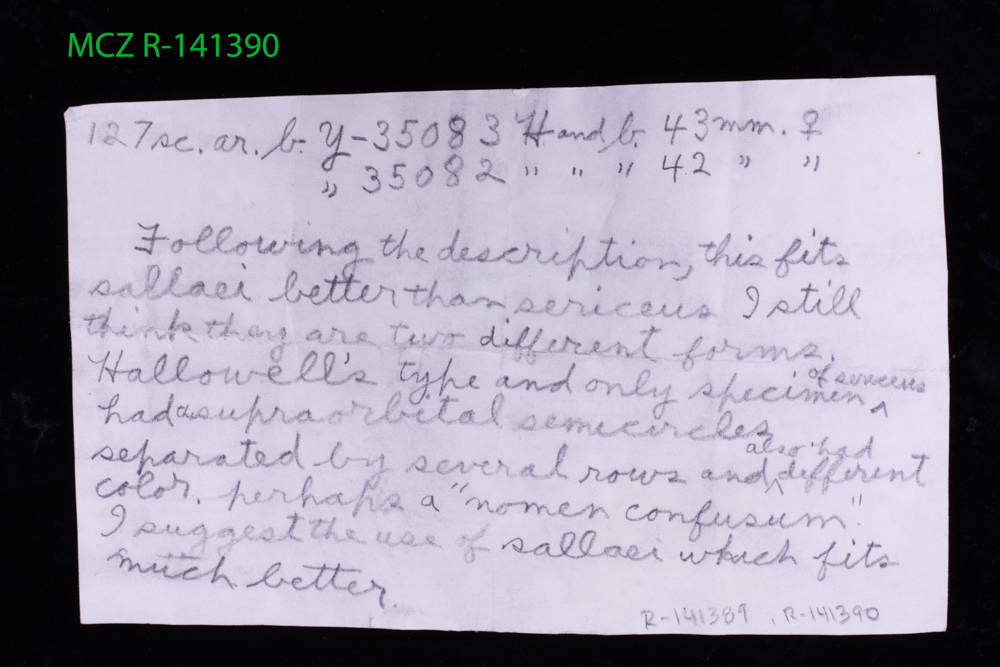 MCZ R-141390
127 sc. ar. b. Y-35083 H and b. 43 mm. ♀
" 35082 " " " 42 " "
Following the description, this fits
sallaei better than sericeus I still
think they are two different forms.
Hallowell's type and only specimen ^ of sericeus
had a supraorbital semicircles
separated by several rows and ^ also had different
color. perhaps a "nomen confusum".
I suggest the use of sallaei which fits
much better.
R-141389, R-141390